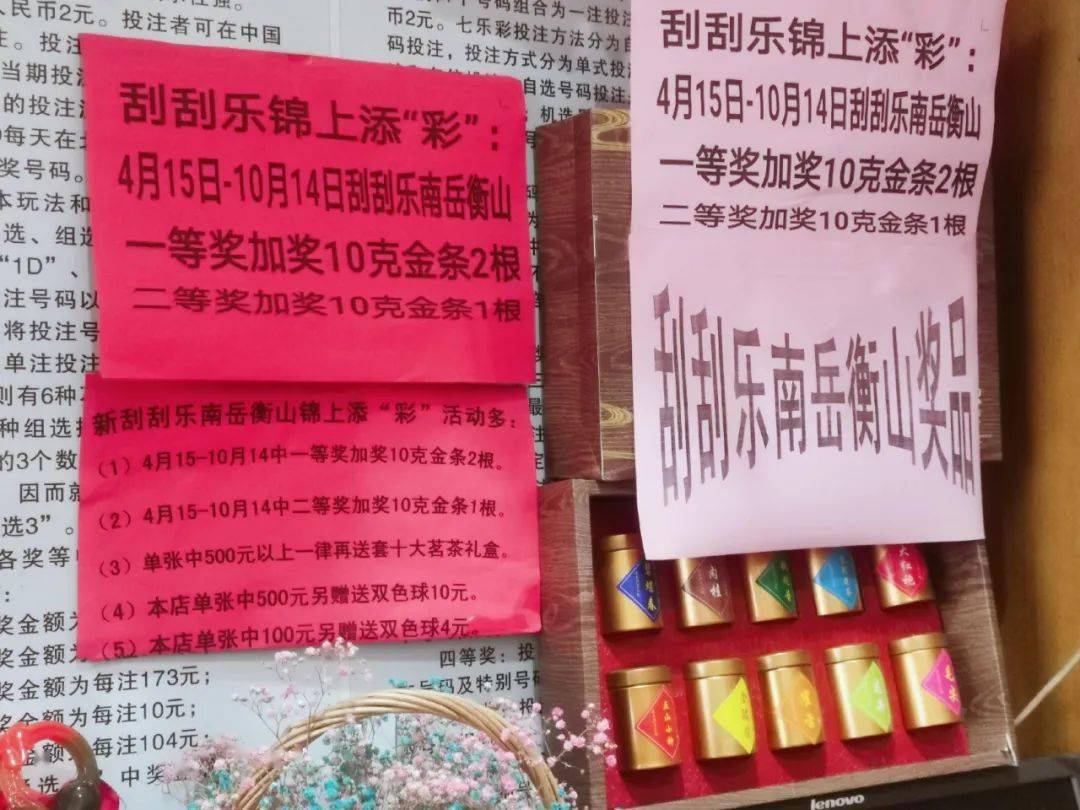 人民币2元。投注者可在中国
当期投注
的投注
每天在
奖号码。
本玩法和
选、组选
“1D”、
注号码以
将投注号
单注投注
则有6种
种组选
的3个数
因而就
选3”。
各奖等
奖金额为
奖金额为
奖金额为每注173元；
奖金额为每注10元；
奖金额为每注104元；
中奖
号码组合为一注投注
币2元。七乐彩投注方法分为自
码投注，投注方式分为单式投
自选号码投注
机选
四等奖：投
号码及特别号码
刮刮乐锦上添“彩”：
4月15日-10月14日刮刮乐南岳衡山
一等奖加奖10克金条2根
二等奖加奖10克金条1根
新刮刮乐南岳衡山锦上添“彩”活动多：
（1）4月15-10月14中一等奖加奖10克金条2根。
（2）4月15-10月14中二等奖加奖10克金条1根。
（3）单张中500元以上一律再送套十大茗茶礼盒。
（4）本店单张中500元另赠送双色球10元。
（5）本店单张中100元另赠送双色球4元。
刮刮乐锦上添“彩”：
4月15日-10月14日刮刮乐南岳衡山
一等奖加奖10克金条2根
二等奖加奖10克金条1根
刮刮乐南岳衡山奖品
碧螺春
肉桂
大红袍
正山小种
lenovo